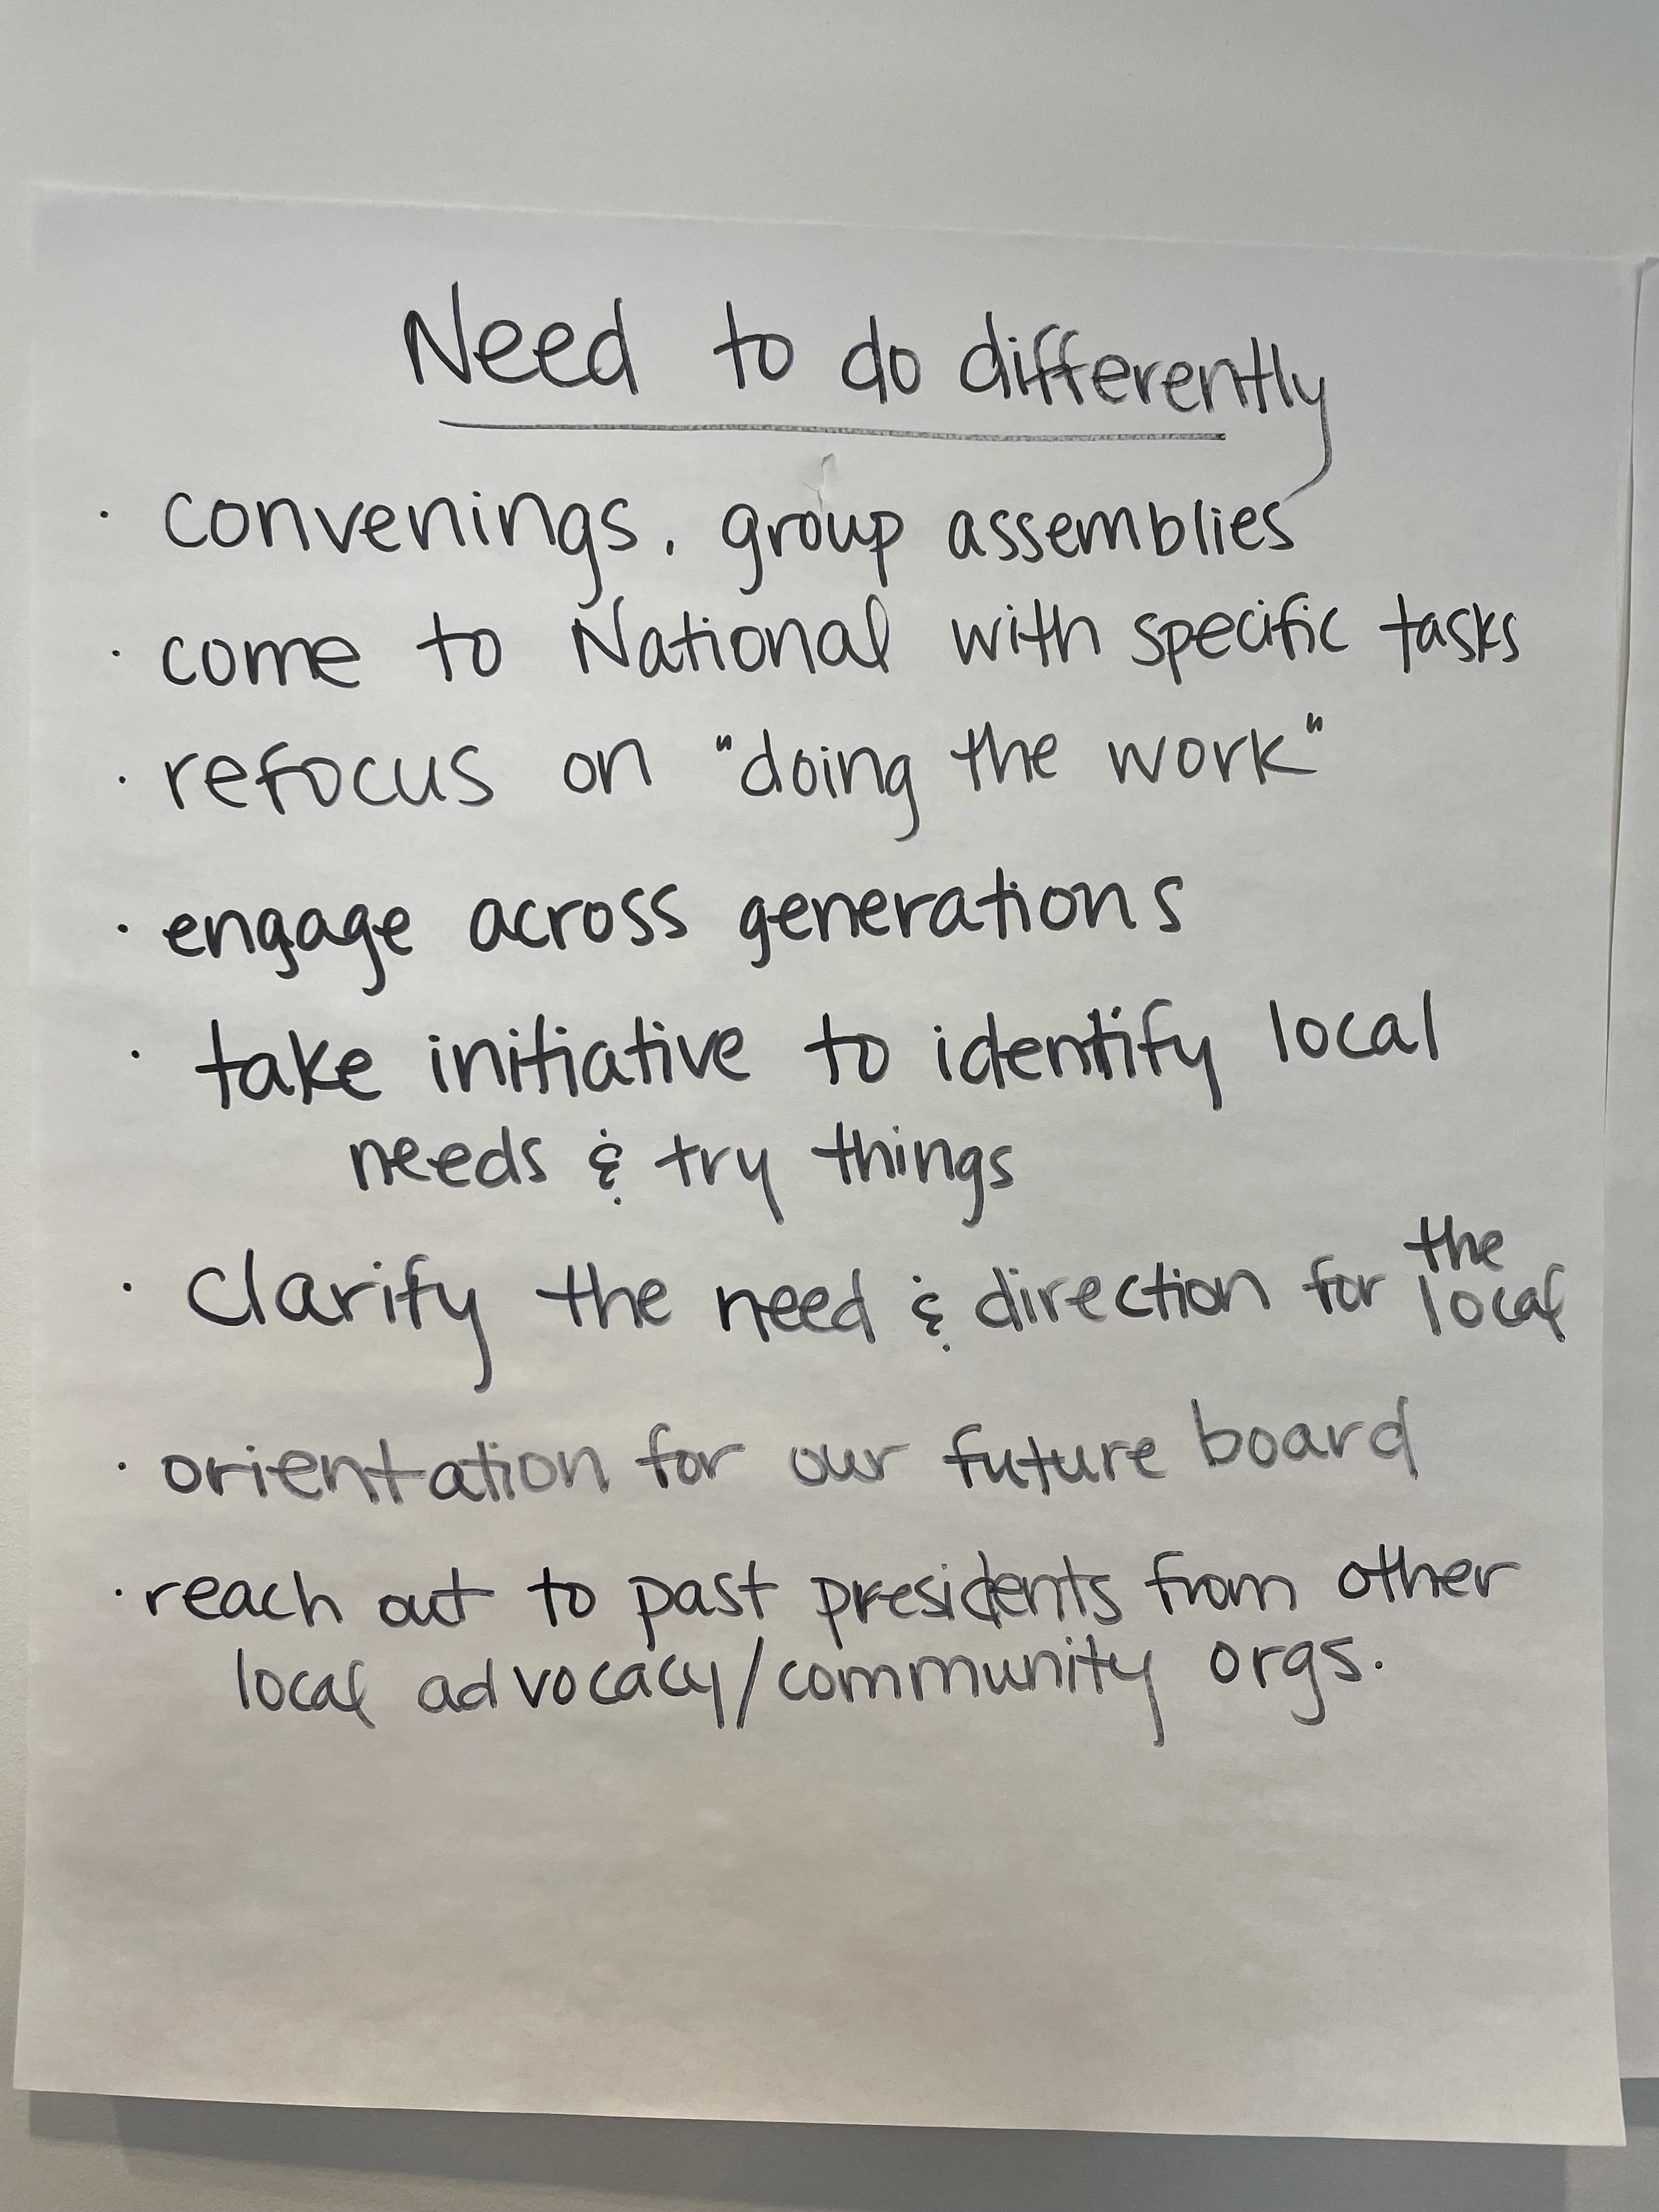 Need to do differently
· convenings, group assemblies
· come to National with specific tasks
· refocus on "doing the work"
· engage across generations
· take initiative to identify local
needs & try things
· clarify the need & direction for the local
· orientation for our future board
· reach out to past presidents from other
local advocacy/community orgs.